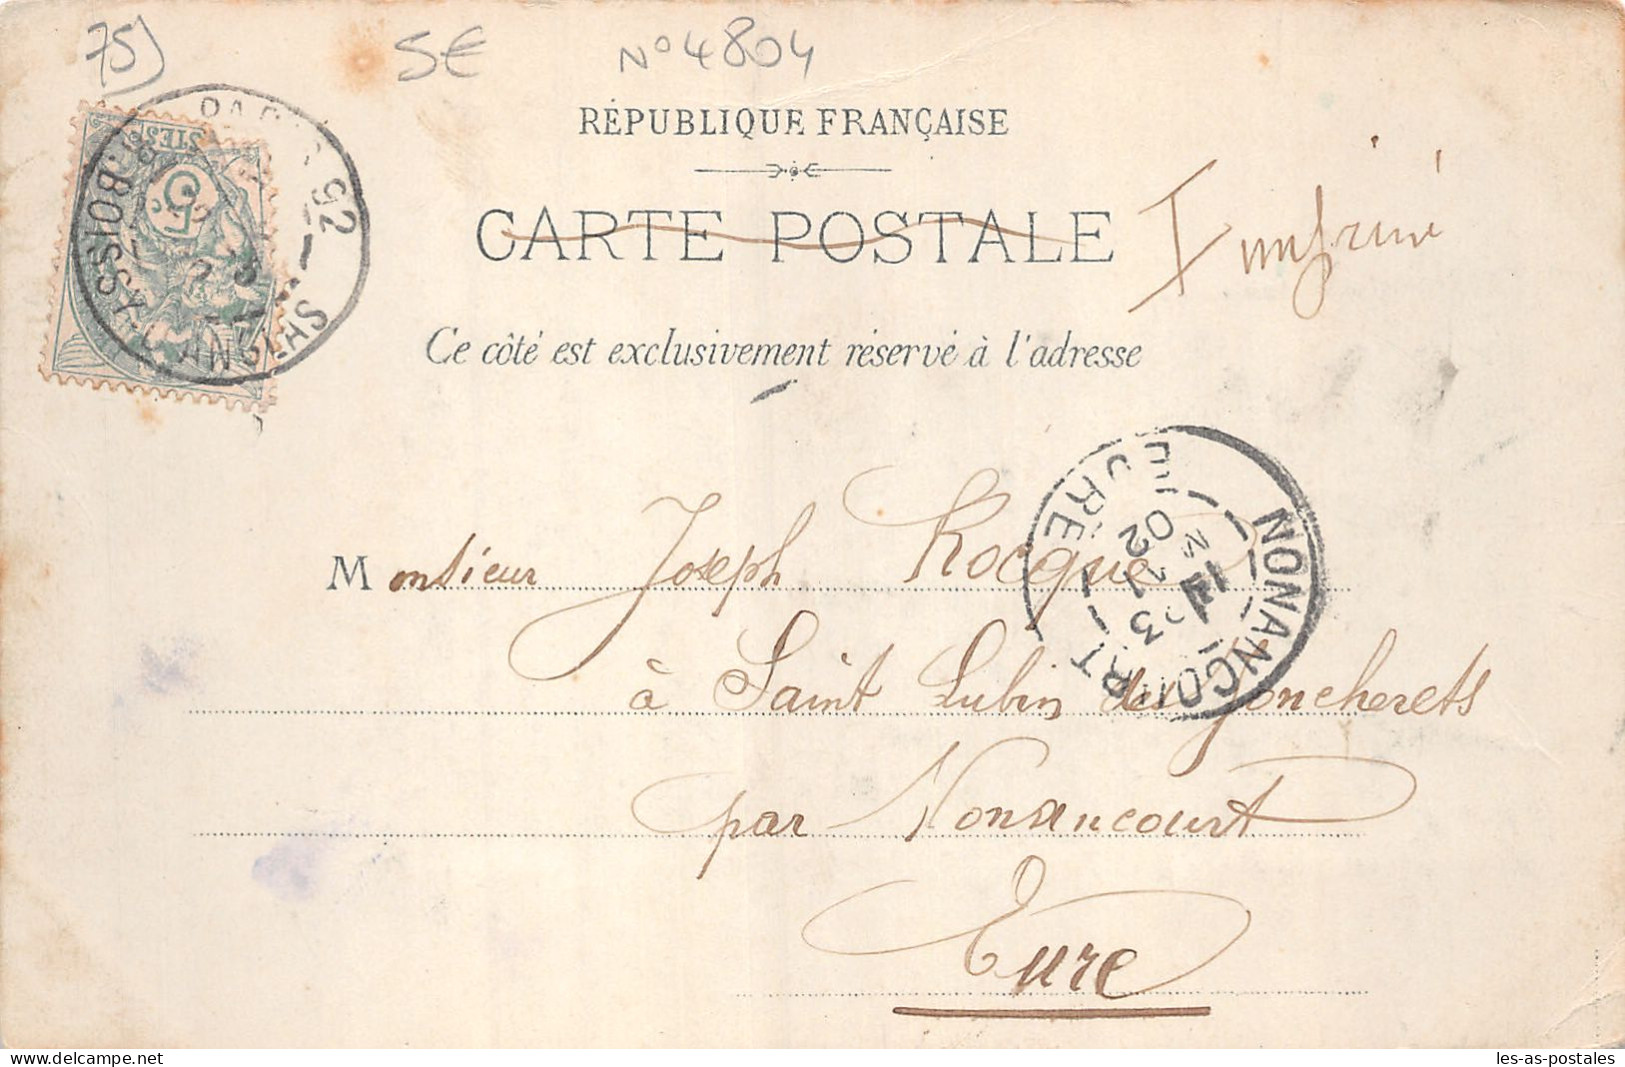 75)
5€
N° 4804
RÉPUBLIQUE FRANÇAISE
CARTE POSTALE
Imprimé
Ce côté est exclusivement réservé à l'adresse
5
PARIS 52
R. BOISSY-D'ANGLAS
NONANCOURT
EURE
02
Monsieur Joseph Rocque
à Saint Lubin des Joncherets
par Nonancourt
Eure
delcampe.net
les-as-postales